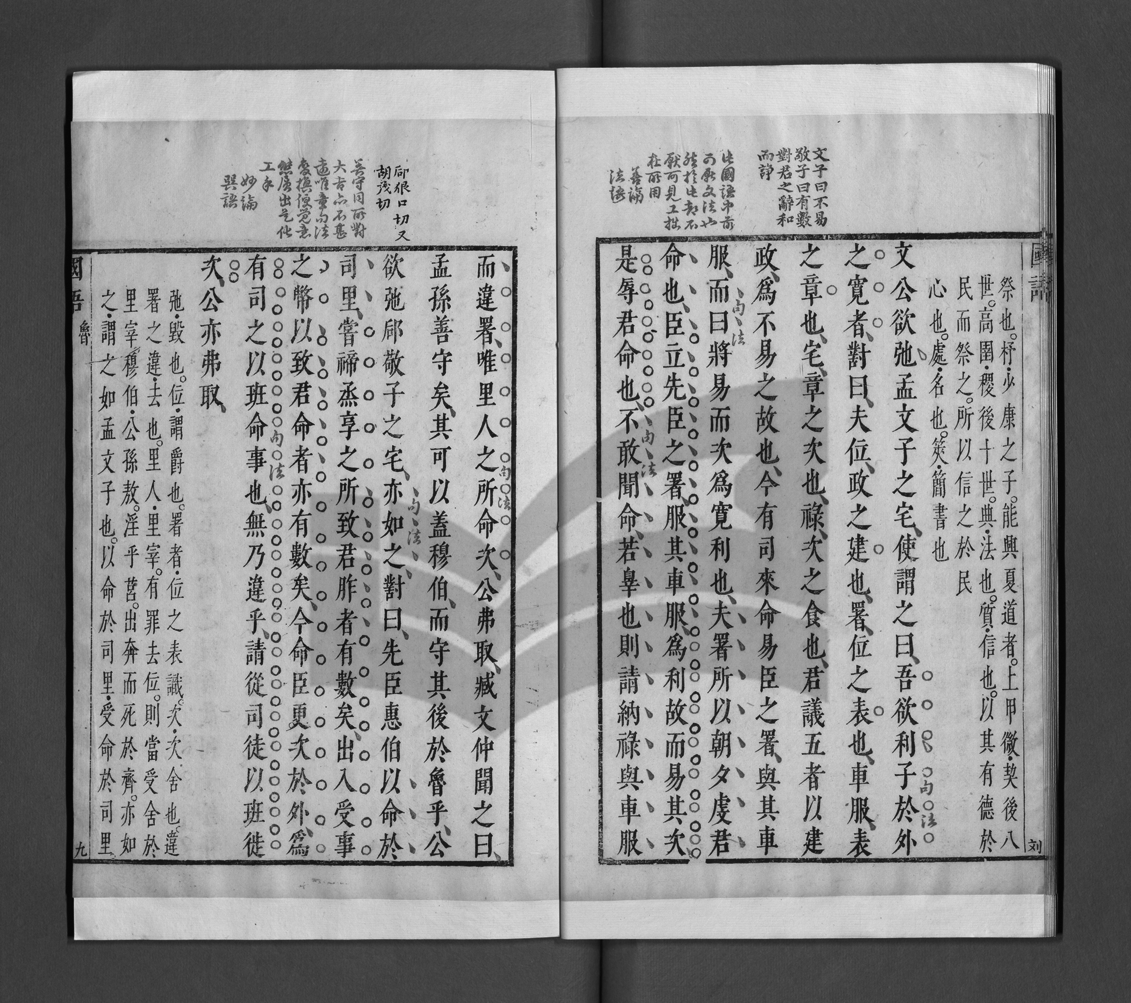 國語
祭也。杼少康之子。能興夏道者。上甲微契後八
世。高圉稷後十世。典法也。質信也。以其有德於
民而祭之。所以信之於民
心也。處名也。筴簡書也
文公欲弛孟文子之宅、使謂之曰、吾欲利子於外
之寬者、對曰、夫位、政之建也、署、位之表也、車服、表
之章也、宅、章之次也、祿、次之食也、君議五者以建
政、爲不易之故也、今有司來命易臣之署、與其車
服、而曰將易而次爲寬利也、夫署所以朝夕虔君
命也、臣立先臣之署、服其車服、爲利故而易其次、
是辱君命也、不敢聞命、若辠也、則請納祿與車服
刘
文子曰不易
敬子曰有數
對君之辭和
而諍
句法
句法
句法
善論
法語
而違署、唯里人之所命次、公弗取、臧文仲聞之曰、
孟孫善守矣、其可以蓋穆伯、而守其後於魯乎、公
欲弛郈敬子之宅、亦如之、對曰、先臣惠伯以命於
司里、嘗禘烝享之所致君胙者有數矣、出入受事
之幣以致君命者亦有數矣、今命臣更次於外、爲
有司之以班命事也、無乃違乎、請從司徒以班徙
次、公亦弗取、
弛毀也。位謂爵也。署者位之表識。次次舍也。違
署之違去也。里人里宰。有罪去位。則當受舍於
里宰。穆伯公孫敖。淫乎莒。出奔而死於齊。亦如
之謂之如孟文子也。以命於司里受命於司里
國語
魯
九
郈狼口切又
胡茂切
句法
句法
句法
妙論
巽語